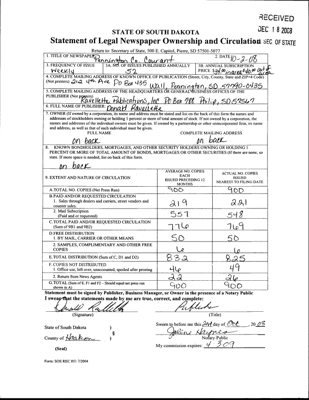 RECEIVED
DEC 18 2008
SEC OF STATE
STATE OF SOUTH DAKOTA
Statement of Legal Newspaper Ownership and Circulation
Return to: Secretary of State, 500 E. Capitol, Pierre, SD 57501-5077
1. TITLE OF NEWSPAPER Pennington Co. Courant
2. DATE 10-2-08
3. FREQUENCY OF ISSUE Weekly
3A. NO. OF ISSUES PUBLISHED ANNUALLY 52
3B. ANNUAL SUBSCRIPTION PRICE
4. COMPLETE MAILING ADDRESS OF KNOWN OFFICE OF PUBLICATION (Street, City, County, State and ZIP+4 Code)
(Not printers) 212 4th Ave PO Box 435
Wall, Pennington, SD 57790-0435
5. COMPLETE MAILING ADDRESS OF THE HEADQUARTERS OR GENERAL BUSINESS OFFICES OF THE
PUBLISHER (Not printers)
Ravellette Publications, Inc PO Box 788 Philip, SD 57567
6. FULL NAME OF PUBLISHER: Donald Ravellette
7. OWNER (If owned by a corporation, its name and address must be stated and also on the back of this form the names and
addresses of stockholders owning or holding 1 percent or more of total amount of stock. If not owned by a corporation, the
names and addresses of the individual owners must be given. If owned by a partnership or other unincorporated firm, its name
and address, as well as that of each individual must be given.
FULL NAME
COMPLETE MAILING ADDRESS
on back
on back
8. KNOWN BONDHOLDERS, MORTGAGES, AND OTHER SECURITY HOLDERS OWNING OR HOLDING 1
PERCENT OR MORE OF TOTAL AMOUNT OF BONDS, MORTGAGES OR OTHER SECURITIES (If there are none, so
state. If more space is needed, list on back of this form
on back
9. EXTENT AND NATURE OF CIRCULATION
AVERAGE NO. COPIES EACH ISSUED PRECEDING 12 MONTHS
ACTUAL NO. COPIES ISSUED NEAREST TO FILING DATE
A. TOTAL NO. COPIES (Net Press Run) 900 900
B. PAID AND/OR REQUESTED CIRCULATION
1. Sales through dealers and carriers, street vendors and counter sales. 219 221
2. Mail Subscription (Paid and or requested) 557 548
C. TOTAL PAID AND/OR REQUESTED CIRCULATION (Sum of 9B1 and 9B2) 776 769
D. FREE DISTRIBUTION
1. BY MAIL, CARRIER OR OTHER MEANS 50 50
2. SAMPLES, COMPLIMENTARY AND OTHER FREE COPIES 6 6
E. TOTAL DISTRIBUTION (Sum of C, D1 and D2) 832 825
F. COPIES NOT DISTRIBUTED
1. Office use, left over, unaccounted, spoiled after printing 46 49
2. Return from News Agents 22 26
G. TOTAL (Sum of E, F1 and F2 – Should equal net press run shown in A) 900 900
Statement must be signed by Publisher, Business Manager, or Owner in the presence of a Notary Public
I swear that the statements made by me are true, correct, and complete:
Publisher
(Signature)
(Title)
State of South Dakota )
§
County of Haakon )
(Seal)
Sworn to before me this 2nd day of Oct 2008
Notary Public
My commission expires: 4-3-09
Form: SOS REC 051 7/2004